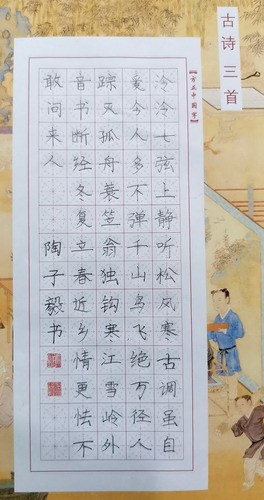 古诗三首
【方正中国字】
泠泠七弦上静听松风寒古调虽自
爱今人多不弹千山鸟飞绝万径人
踪灭孤舟蓑笠翁独钓寒江雪岭外
音书断经冬复立春近乡情更怯不
敢问来人 陶子毅书